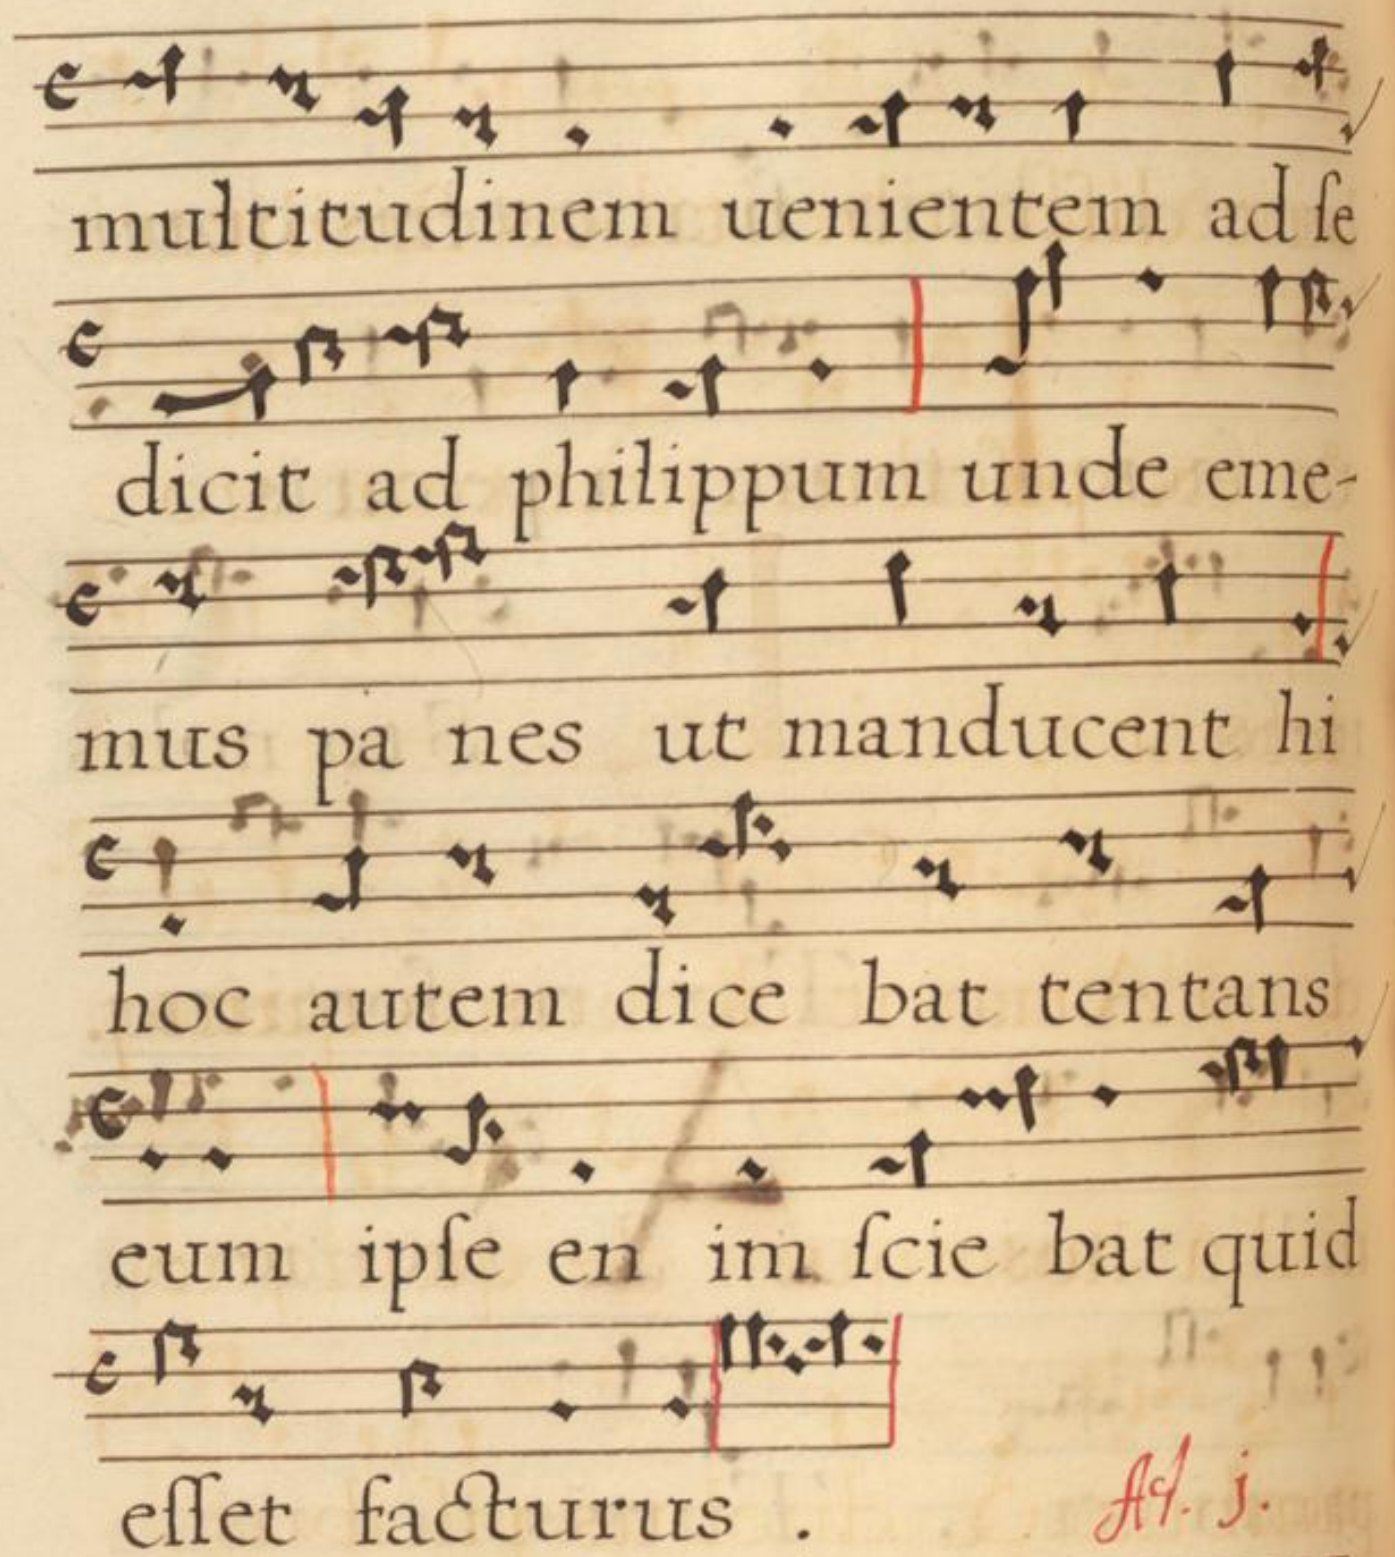 multitudinem uenientem ad ſe
dicit ad philippum unde eme-
mus pa nes ut manducent hi
hoc autem dice bat tentans
eum ipſe en im ſcie bat quid
eſſet facturus .
Ad. j.